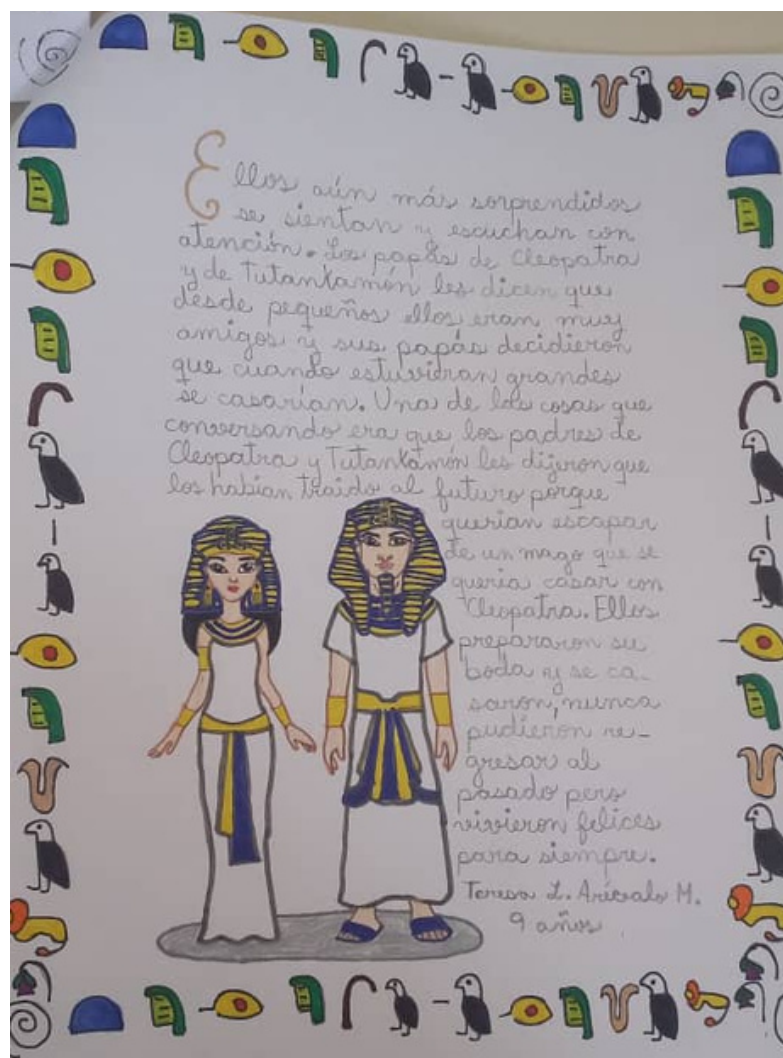 Ellos aún más sorprendidos
se sientan y escuchan con
atención. Los papás de Cleopatra
y de Tutankamón les dicen que
desde pequeños ellos eran muy
amigos y sus papás decidieron
que cuando estuvieran grandes
se casarían. Una de las cosas que
conversando era que los padres de
Cleopatra y Tutankamón les dijeron que
los habían traido al futuro porque
querian escapar
de un mago que se
queria casar con
Cleopatra. Ellos
prepararon su
boda y se ca-
saron, nunca
pudieron re-
gresar al
pasado pero
vivieron felices
para siempre.
Teresa L. Arévalo M.
9 años